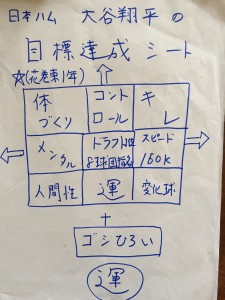 日本ハム 大谷翔平の
目標達成シート
☆(花巻東1年)
体づくり
コントロール
キレ
メンタル
ドラフト1位 8球団指名
スピード 160k
人間性
運
変化球
+
ゴミひろい
運